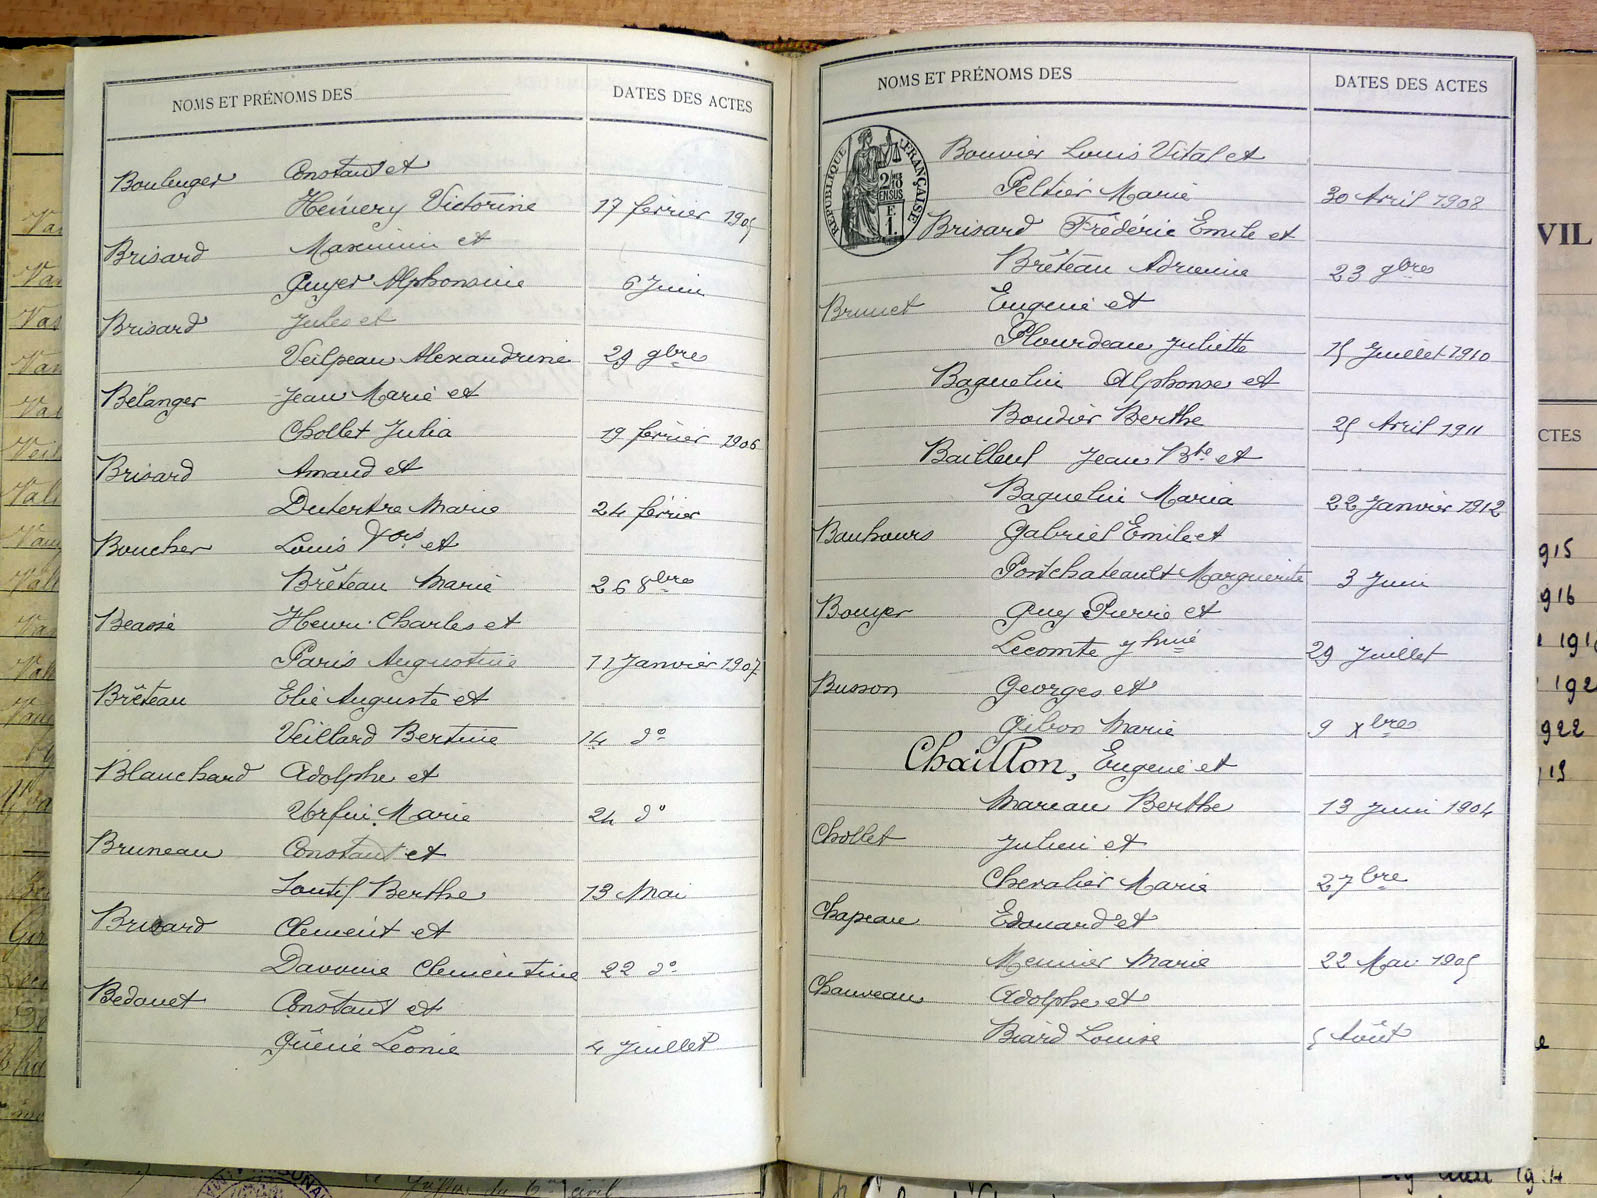 NOMS ET PRÉNOMS DES
DATES DES ACTES
Boulenger Constant et
Hémery Victorine 17 février 1905
Brisard Maximin et
Guyer Alphonsine 6 Juin
Brisard Jules et
Veilpeau Alexandrine 29 9bres
Bélanger Jean Marie et
Chollet Julia 19 février 1906
Brisard Amand et
Dutertre Marie 24 février
Boucher Louis Vor et
Brêteau Marie 26 8bres
Beassé Henri Charles et
Paris Augustine 11 Janvier 1907
Brêteau Elie Auguste et
Veillard Bertine 14 do
Blanchard Adolphe et
Urfin Marie 24 do
Bruneau Constant et
Loutil Berthe 13 Mai
Brisard Clément et
Davoine Clémentine 22 do
Bedouet Constant et
Guérie Léonie 4 Juillet
NOMS ET PRÉNOMS DES
DATES DES ACTES
RÉPUBLIQUE FRANÇAISE
2/10
EN SUS
E
1.
Bouvier Louis Vital et
Peltier Marie 30 Avril 1908
Brisard Frédéric Emile et
Brêteau Adrienne 23 9bres
Brunet Eugène et
Plourdeau Juliette 15 Juillet 1910
Baguelin Alphonse et
Boudier Berthe 25 Avril 1911
Bailleul Jean Bte et
Baguelin Maria 22 Janvier 1912
Bouhours Gabriel Emile et
Pontchateault Marguerite 3 Juin
Bouyer Guy Pierre et
Lecomte 29 Juillet
Busson Georges et
Gibon Marie 9 Xbres
Chaillon, Eugène et
Mareau Berthe 13 Juin 1904
Chollet Julien et
Chevalier Marie 2 7bre
Chapeau Edouard et
Meunier Marie 22 Mai 1905
Chauveau Adolphe et
Biard Louise 5 Août
VIL
CTES
915
916
191
192
922
19